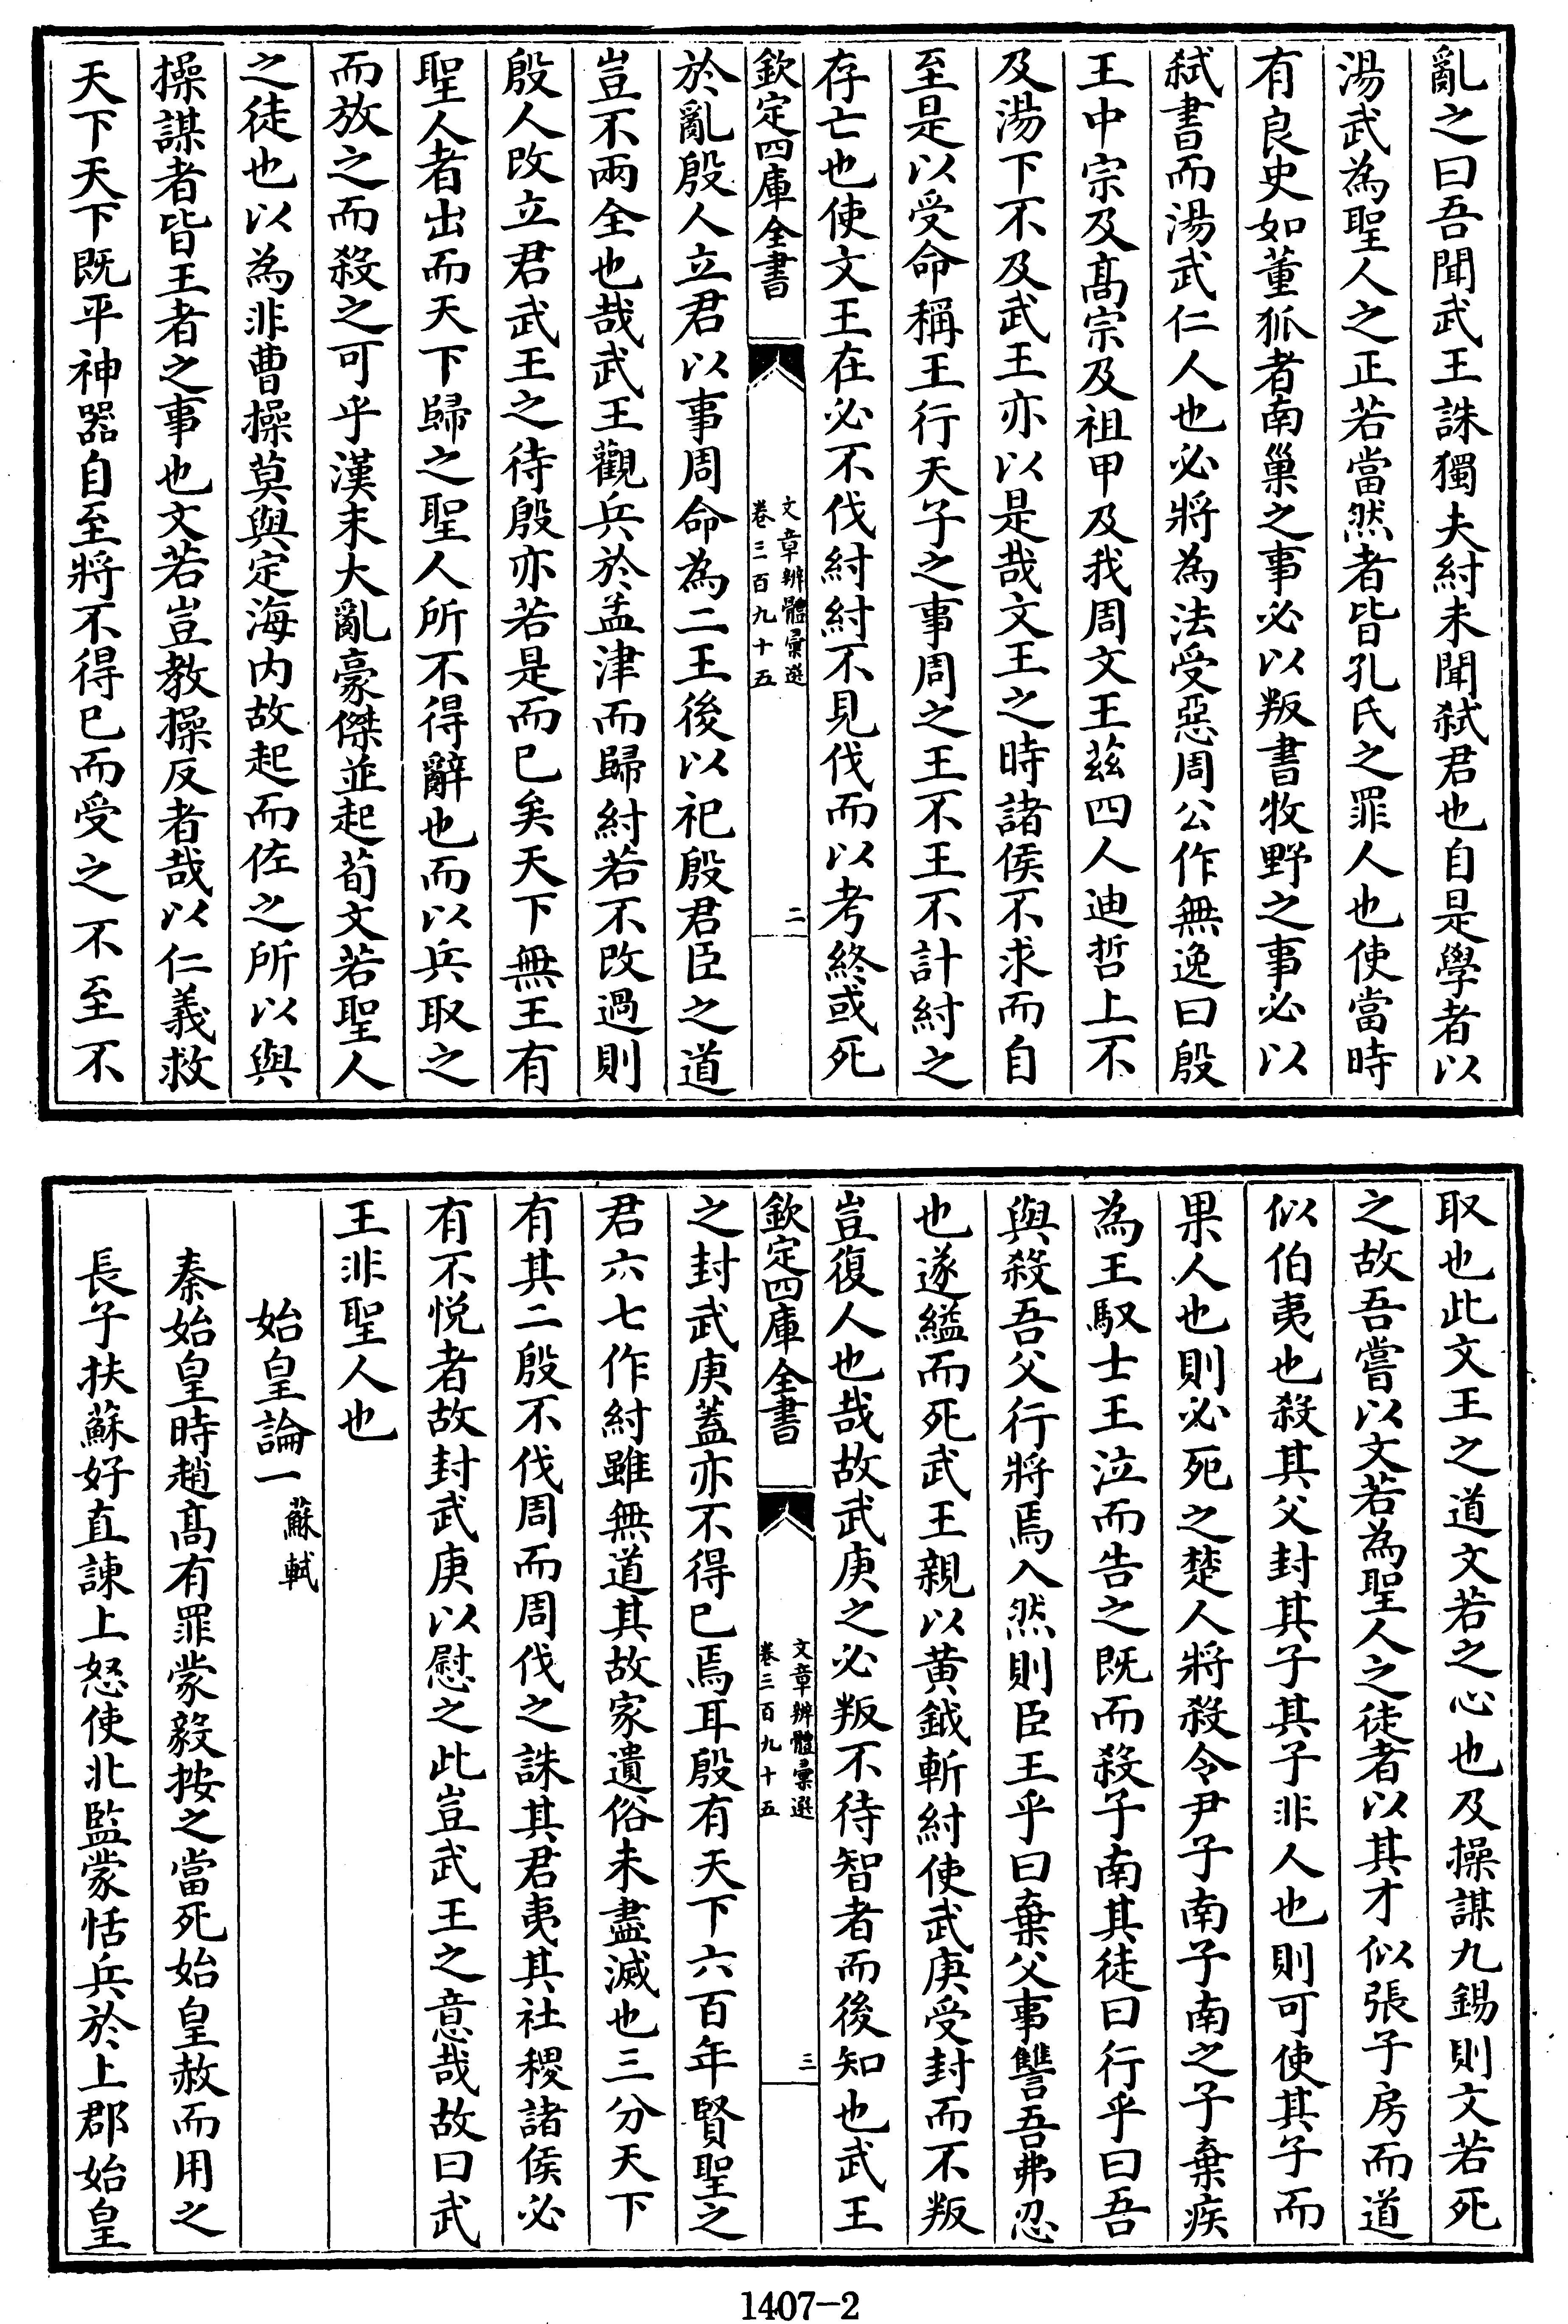 亂之曰吾聞武王誅獨夫紂未聞弑君也自是學者以
湯武為聖人之正若當然者皆孔氏之罪人也使當時
有良史如董狐者南巢之事必以叛書牧野之事必以
弑書而湯武仁人也必將為法受惡周公作無逸曰殷
王中宗及髙宗及祖甲及我周文王兹四人迪哲上不
及湯下不及武王亦以是哉文王之時諸侯不求而自
至是以受命稱王行天子之事周之王不王不計紂之
存亡也使文王在必不伐紂紂不見伐而以考終或死
欽定四庫全書
文章辨體彙選
卷三百九十五
二
於亂殷人立君以事周命為二王後以祀殷君臣之道
豈不兩全也哉武王觀兵於孟津而歸紂若不改過則
殷人改立君武王之待殷亦若是而已矣天下無王有
聖人者出而天下歸之聖人所不得辭也而以兵取之
而放之而殺之可乎漢末大亂豪傑並起荀文若聖人
之徒也以為非曹操莫與定海内故起而佐之所以與
操謀者皆王者之事也文若豈教操反者哉以仁義救
天下天下既平神器自至將不得已而受之不至不
取也此文王之道文若之心也及操謀九錫則文若死
之故吾嘗以文若為聖人之徒者以其才似張子房而道
似伯夷也殺其父封其子其子非人也則可使其子而
果人也則必死之楚人將殺令尹子南子南之子棄疾
為王馭士王泣而告之既而殺子南其徒曰行乎曰吾
與殺吾父行將焉入然則臣王乎曰棄父事讐吾弗忍
也遂縊而死武王親以黄鉞斬紂使武庚受封而不叛
豈復人也哉故武庚之必叛不待智者而後知也武王
欽定四庫全書
文章辨體彙選
卷三百九十五
三
之封武庚蓋亦不得已焉耳殷有天下六百年賢聖之
君六七作紂雖無道其故家遺俗未盡滅也三分天下
有其二殷不伐周而周伐之誅其君夷其社稷諸侯必
有不悦者故封武庚以慰之此豈武王之意哉故曰武
王非聖人也
始皇論一 蘇軾
秦始皇時趙髙有罪蒙毅按之當死始皇赦而用之
長子扶蘇好直諫上怒使北監蒙恬兵於上郡始皇
1407-2